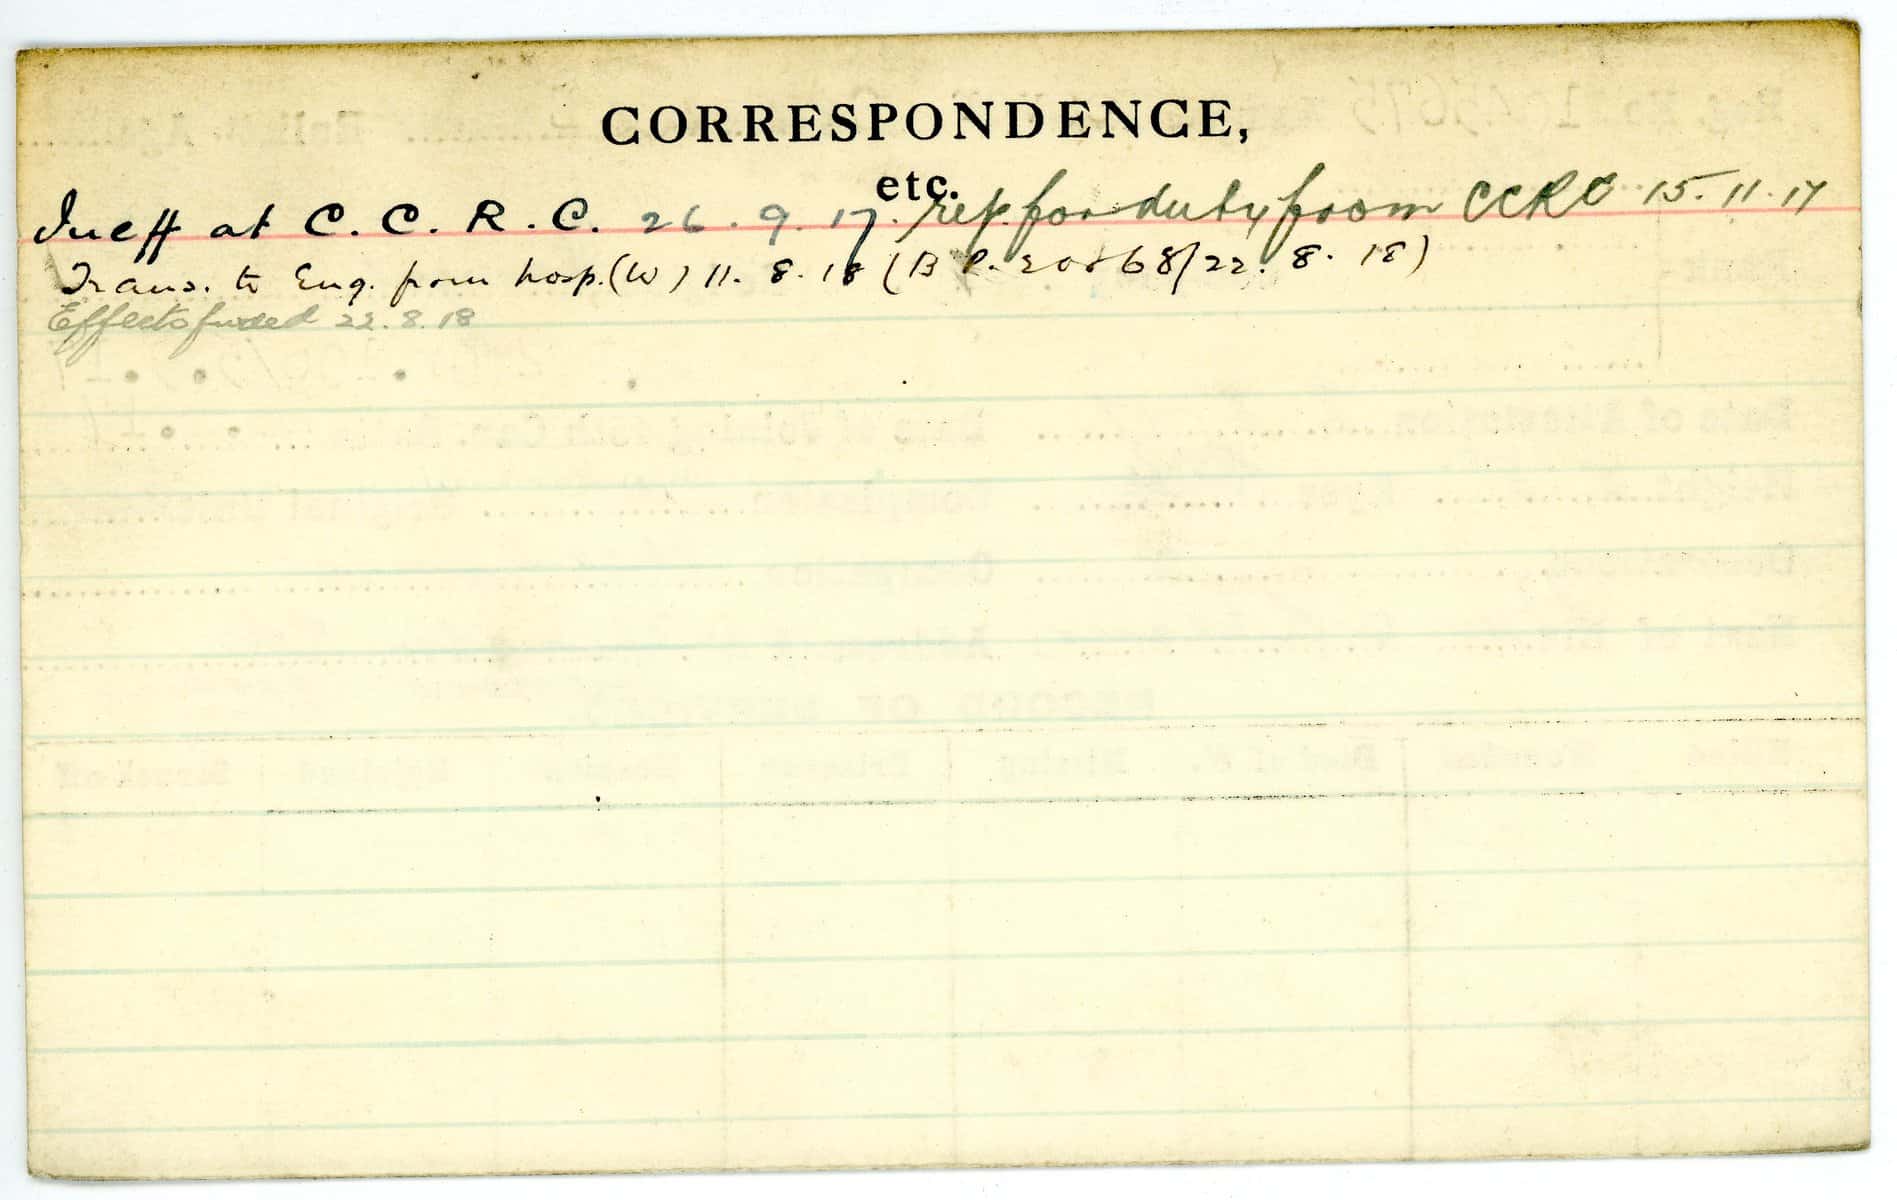 CORRESPONDENCE,
etc.
Ineff at C. C. R. C. 26. 9. 17. rep. for duty from CCRC 15. 11. 17
Trans. to Eng. from hosp. (W) 11. 8. 18 (B 22. 8. 18)
Effects fwded 22. 8. 18